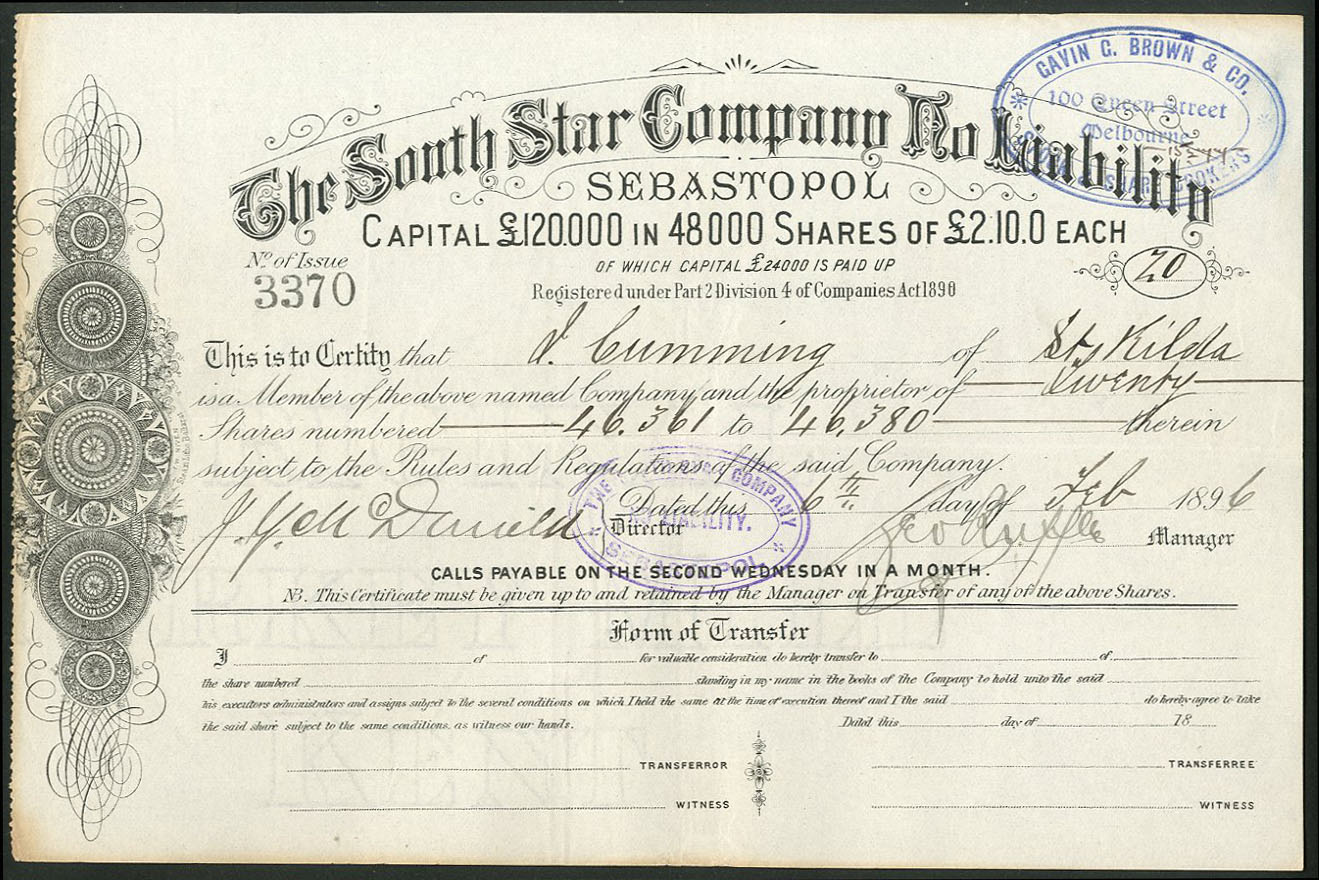 GAVIN G. BROWN & CO.
100 Queen Street
Melbourne
SHARE BROKERS
The South Star Company No Liability
SEBASTOPOL
CAPITAL £120.000 IN 48000 SHARES OF £2.10.0 EACH
OF WHICH CAPITAL £24000 IS PAID UP
No. of Issue
3370
20
Registered under Part 2 Division 4 of Companies Act 1890
This is to Certify that J. Cumming of St. Kilda
is a Member of the above named Company and the proprietor of Twenty
Shares numbered 46.361 to 46,380 therein
subject to the Rules and Regulations of the said Company.
THE COMPANY
LIABILITY.
SEBASTOPOL
Dated this 6th day of Feb 1896
Director
Manager
CALLS PAYABLE ON THE SECOND WEDNESDAY IN A MONTH.
NB. This Certificate must be given up to and retained by the Manager on Transfer of any of the above Shares.
Form of Transfer
I of for valuable consideration do hereby transfer to of
the share numbered standing in my name in the books of the Company to hold unto the said
his executors administrators and assigns subject to the several conditions on which I held the same at the time of execution thereof and I the said do hereby agree to take
the said share subject to the same conditions, as witness our hands. Dated this day of 18
TRANSFERROR TRANSFERREE
WITNESS WITNESS